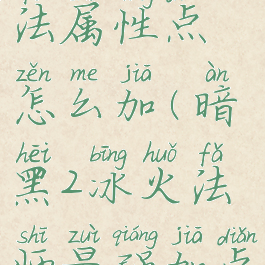 法属性点
zěn me jiā àn
怎么加(暗
hēi bīng huǒ fǎ
黑2冰火法
shī zuì qiáng jiā diǎn
师最强加点